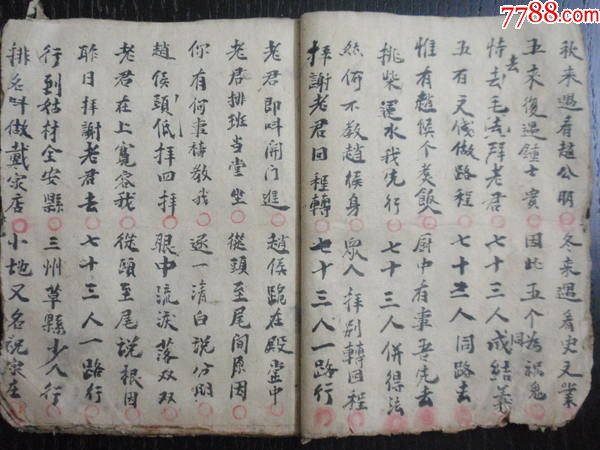 7788.com
秋来遇看赵公明 冬来遇看史文業
五来復遇鍾士貴 因此五个為祸鬼
去
特去毛法拜老君 七十三人成結義
同
五百文伐做路程 七十三人同路去
惟有趙候个煮飯 厨中有事吾先去
挑柴運水我先行 七十三人併得法
如何不教趙候身 眾人拜別轉回程
拜謝老君回程轉 七十三人一路行
老君即叫開门進 趙侯跪在殿堂中
老君排班当堂坐 從頭至尾問原因
你有何事待教我 逐一清白說分明
趙侯頭低拜四拜 眼中流淚落双双
老君在上寬容我 從頭至尾説根因
昨日拜謝老君去 七十三人一路行
行到姑村全安縣 三州草縣少人行
排名叫做戴家店 小地又名祝家庄